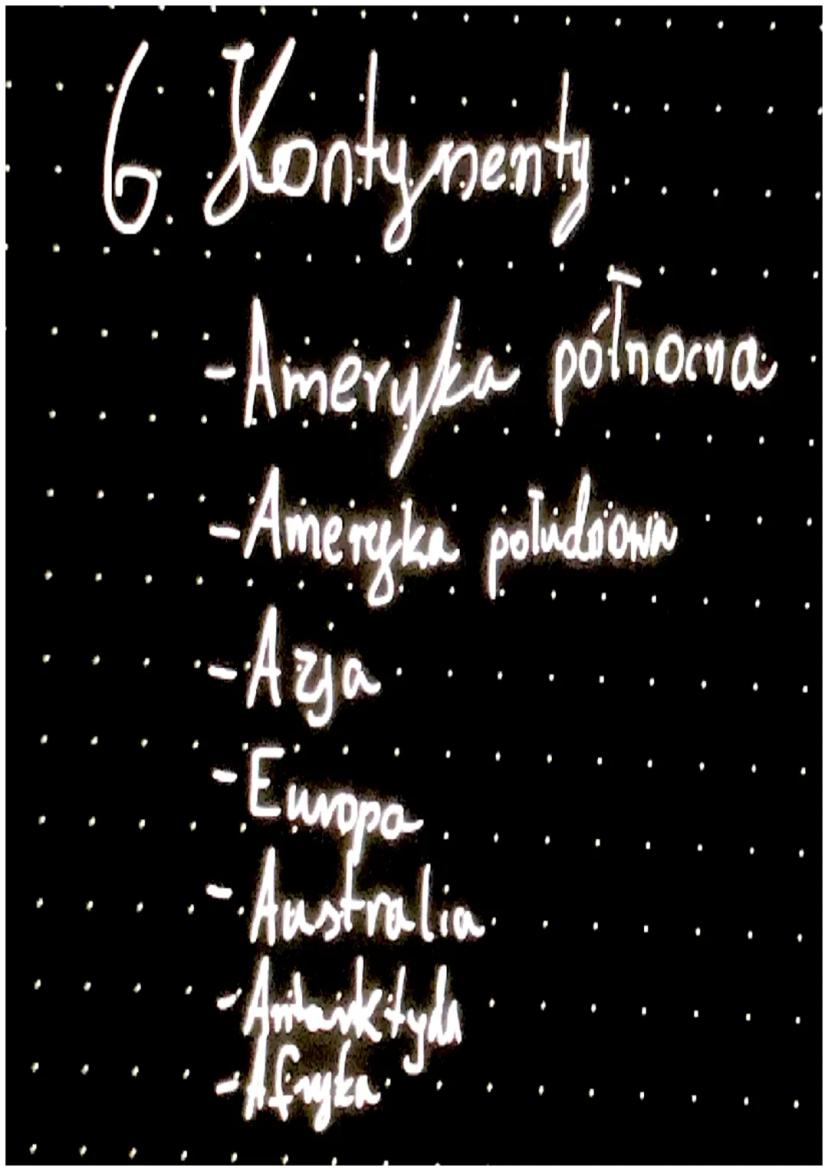 6. Kontynenty
- Ameryka północna
- Ameryka południowa
- Azja
- Europa
- Australia
- Antarktyda
- Afryka